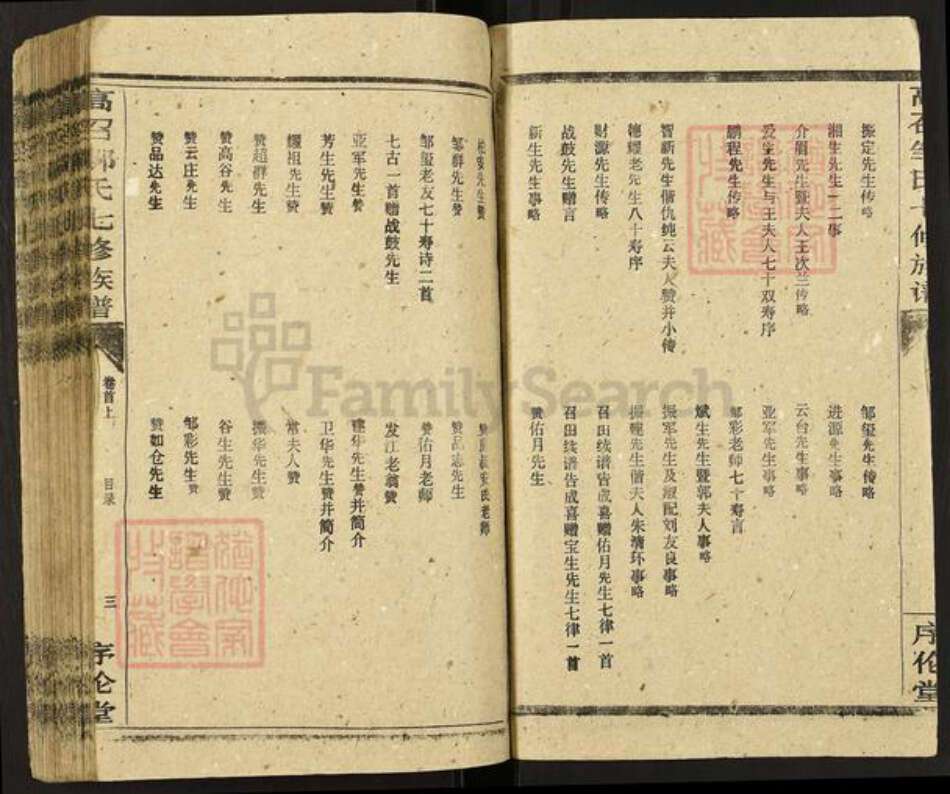 序伦堂
振定先生传略
湘生先生一二事
介眉先生暨夫人王次兰传略
爱生先生与王夫人七十双寿序
鹏程先生传略
智新先生偕仇纯云夫人赞并小传
德耀老先生八十寿序
财源先生传略
战鼓先生赠言
新生先生事略
邹玺先生传略
进源先生事略
云台先生事略
亚军先生事略
邹彩老师七十寿言
斌生先生暨郭夫人事略
振军先生及原配刘友良事略
偕夫人朱清环事略
召田续谱告成喜赠佑月先生七律一首
召田续谱告成喜赠宝生先生七律一首
赞佑月先生
邹群先生赞
邹玺老友七十寿诗二首
七古一首赠战鼓先生
亚军先生赞
芳生先生赞
耀祖先生赞
赞超群先生
赞高谷先生
赞云庄先生
赞品达先生
赞品志先生
赞佑月老师
发江老翁赞
建华先生赞并简介
卫华先生赞并简介
常夫人赞
振华先生赞
谷生先生赞
邹彩先生赞
赞如仓先生
高召邹氏七修族谱
卷首上
目录
三
序伦堂
FamilySearch